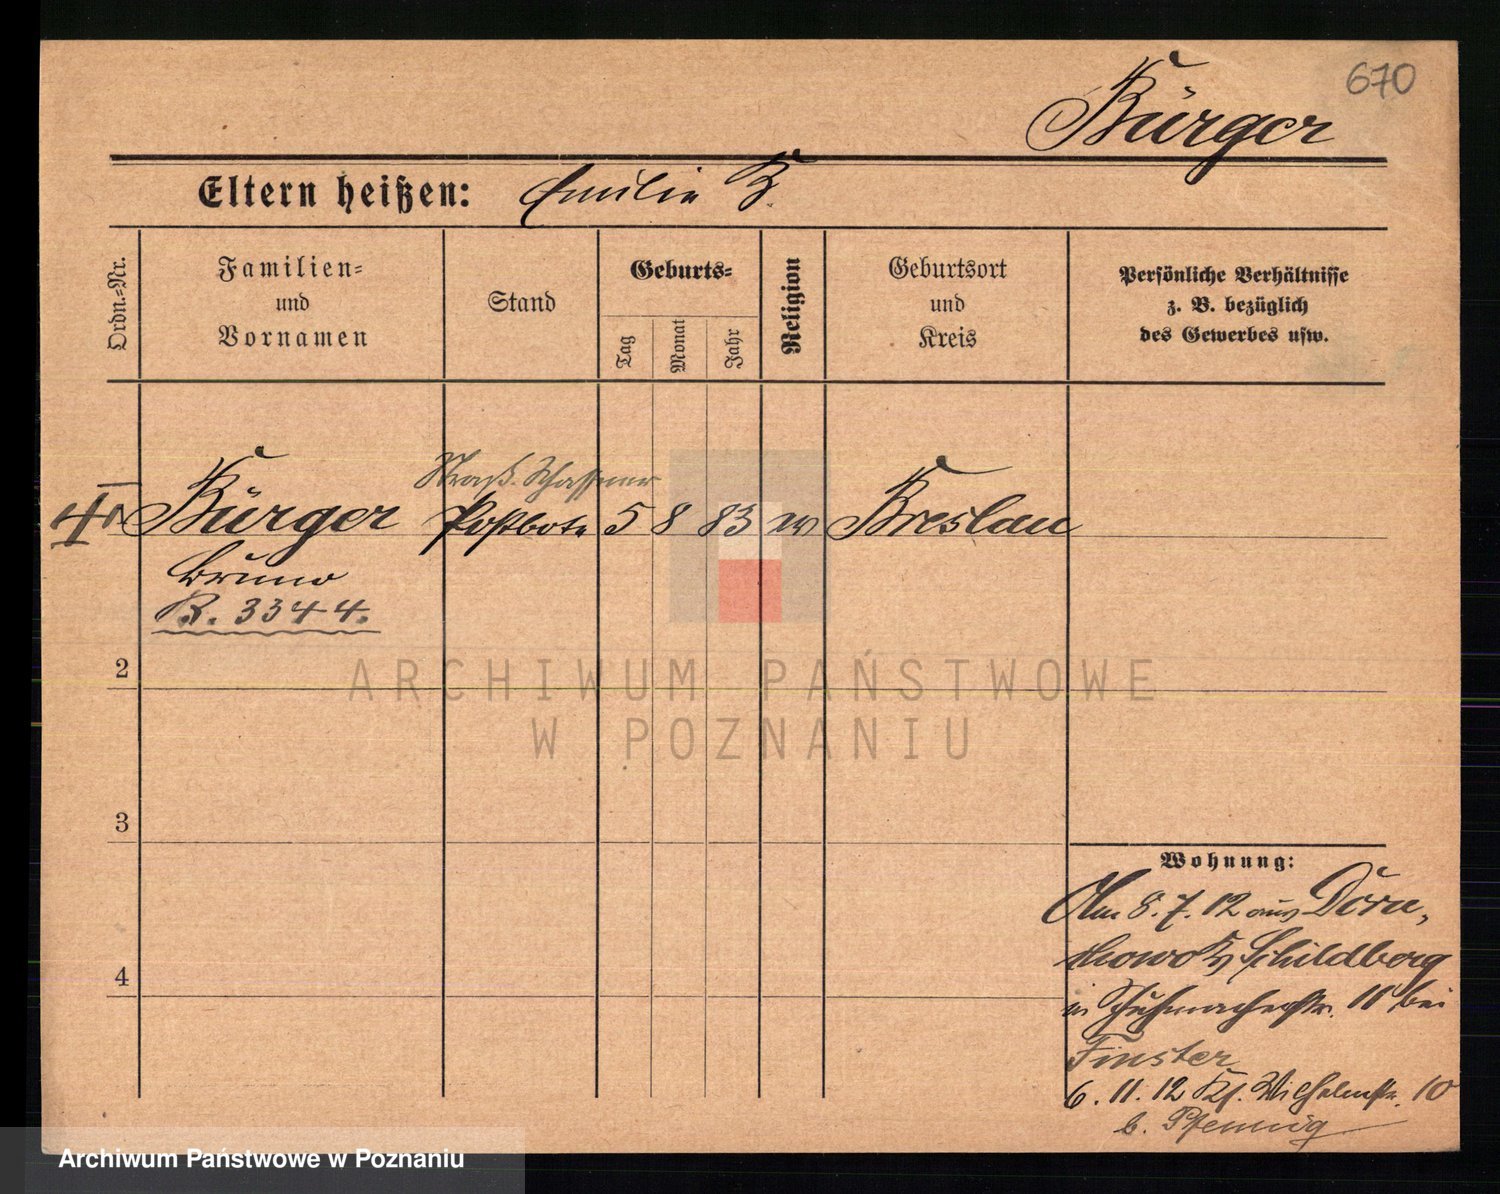 670
Bürger
Eltern heißen: Emilie B.
Ordn.-Nr.
Familien-
und
Vornamen
Stand
Geburts-
Tag
Monat
Jahr
Religion
Geburtsort
und
Kreis
Persönliche Verhältnisse
z. B. bezüglich
des Gewerbes usw.
Straß. Schaffner
Bürger Postbote 5 8 83 ev Breslau
Bruno
R. 3344.
2
3
4
Wohnung:
Am 8.7.12 aus
Schildberg
in Schuhmacherstr. 11 bei
Finster
6.11.12 Kl. Wilhelmstr. 10
b. Pfennig
ARCHIWUM PAŃSTWOWE
W POZNANIU
Archiwum Państwowe w Poznaniu